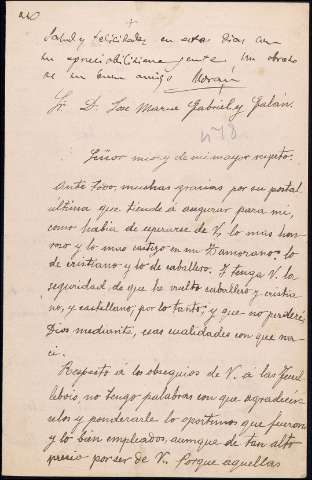 240
+
Salud y felicidades en estos días con
su apreciabilísima gente. Un abrazo
de su buen amigo Morán
Sr. D. José María Gabriel y Galán.
Señor mío y de mi mayor respeto:
Ante todo, muchas gracias por su postal
última que tiende á augurar para mí,
como había de esperarse de V, lo más hon-
roso y lo más castizo en un Zamorano: lo
de cristiano y lo de caballero. Y tenga V. la
seguridad, de que he vuelto caballero y cristia-
no, y castellano, por lo tanto; y que no perderé,
Dios mediante, esas cualidades con que na-
cí.
Respecto á los obsequios de V. á las
no tengo palabras con que agradecér-
selos y ponderarle lo oportunos que fueron
y lo bien empleados, aunque de tan alto
precio por ser de V. Porque aquellas